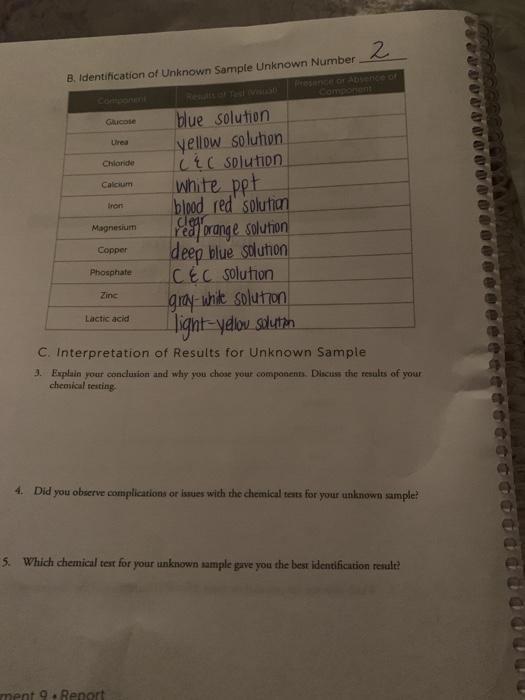 B. Identification of Unknown Sample Unknown Number 2
Component Results of Test (Visual) Presence or Absence of Component
Glucose blue solution
Urea yellow solution
Chloride C & C solution
Calcium white ppt
Iron blood red solution
Magnesium clear red/orange solution
Copper deep blue solution
Phosphate C & C solution
Zinc gray-white solution
Lactic acid light-yellow solution
C. Interpretation of Results for Unknown Sample
3. Explain your conclusion and why you chose your components. Discuss the results of your
chemical testing.
4. Did you observe complications or issues with the chemical tests for your unknown sample?
5. Which chemical test for your unknown sample gave you the best identification result?
ment 9 • Report